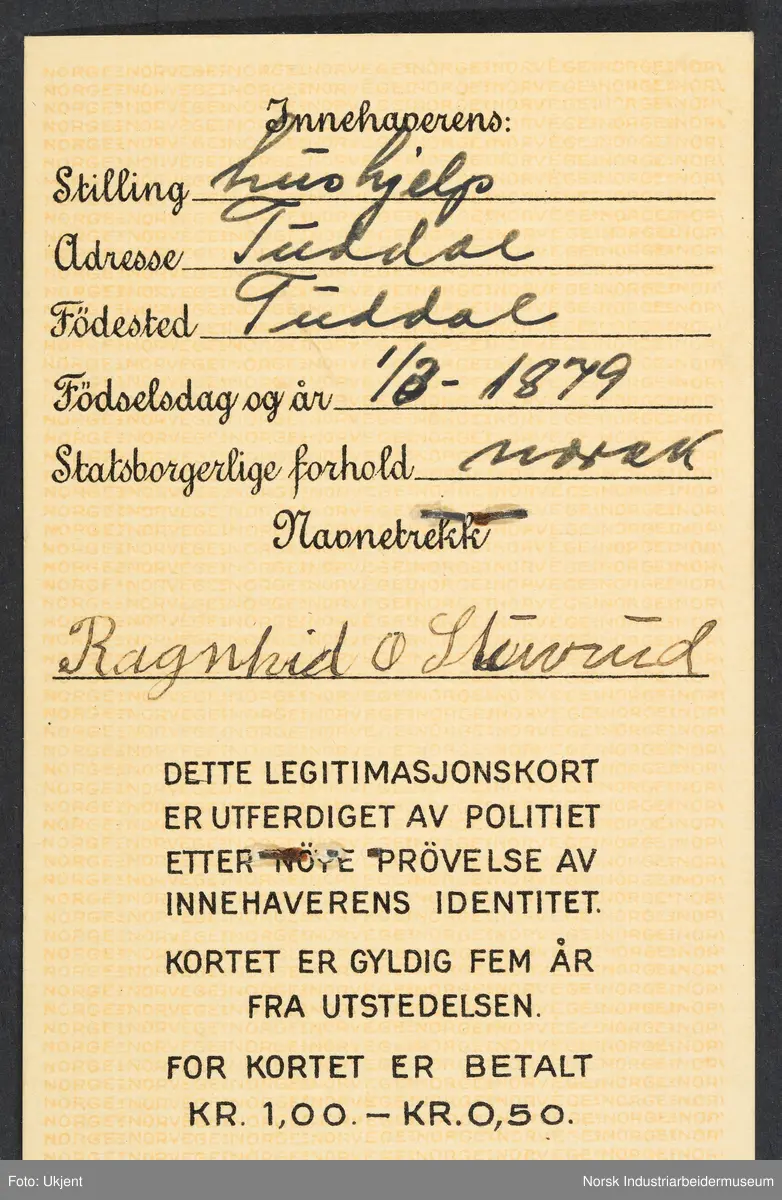 Innehaverens:
Stilling hushjelp
Adresse Tuddal
Födested Tuddal
Födselsdag og år 1/3 - 1879
Statsborgerlige forhold norsk
Navnetrekk
Ragnhid O Stuvrud
DETTE LEGITIMASJONSKORT
ER UTFERDIGET AV POLITIET
ETTER NÖYE PRÖVELSE AV
INNEHAVERENS IDENTITET.
KORTET ER GYLDIG FEM ÅR
FRA UTSTEDELSEN.
FOR KORTET ER BETALT
KR. 1,00. — KR. 0,50.
Foto: Ukjent Norsk Industriarbeidermuseum